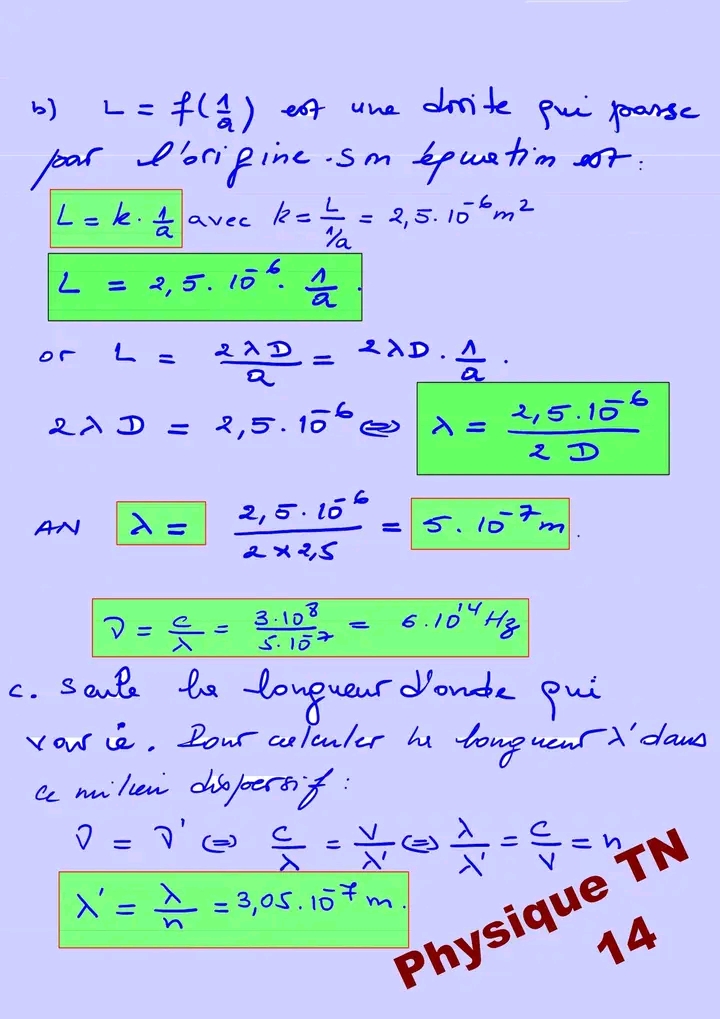 b) L = f(1/a) est une droite qui passe
par l'origine. Son équation est :
L = k. 1/a avec k = L/(1/a) = 2,5. 10⁻⁶ m²
L = 2,5. 10⁻⁶. 1/a.
or L = 2λD/a = 2λD. 1/a.
2λD = 2,5. 10⁻⁶ ⇔ λ = 2,5. 10⁻⁶/2D
AN λ = 2,5. 10⁻⁶/2 x 2,5 = 5. 10⁻⁷ m.
ν = c/λ = 3.10⁸/5.10⁻⁷ = 6.10¹⁴ Hz
c. Seule la longueur d'onde qui
varie. Pour calculer la longueur λ' dans
ce milieu dispersif :
ν = ν' ⇔ c/λ = V/λ' ⇔ λ/λ' = c/V = n
λ' = λ/n = 3,05. 10⁻⁷ m.
Physique TN
14